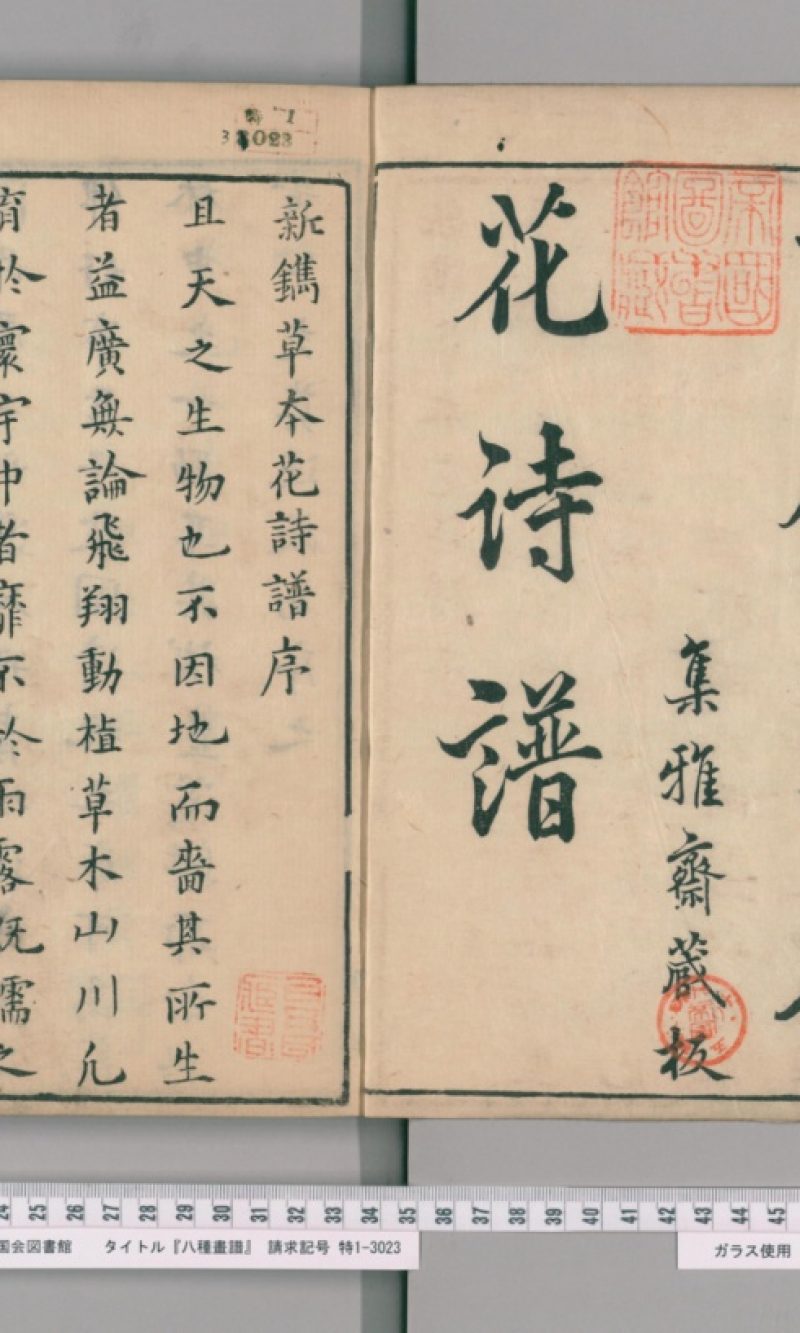 花诗譜
集雅齋蔵板
帝國圖書館藏
新鐫草本花詩譜序
且天之生物也不因地而嗇其所生
者益廣無論飛翔動植草木山川凡
育於寰宇中者靡不於雨露既濡之
特 1
3023
24 25 26 27 28 29 30 31 32 33 34 35 36 37 38 39 40 41 42 43 44 45
国会図書館 タイトル『八種畫譜』 請求記号 特1-3023
ガラス使用